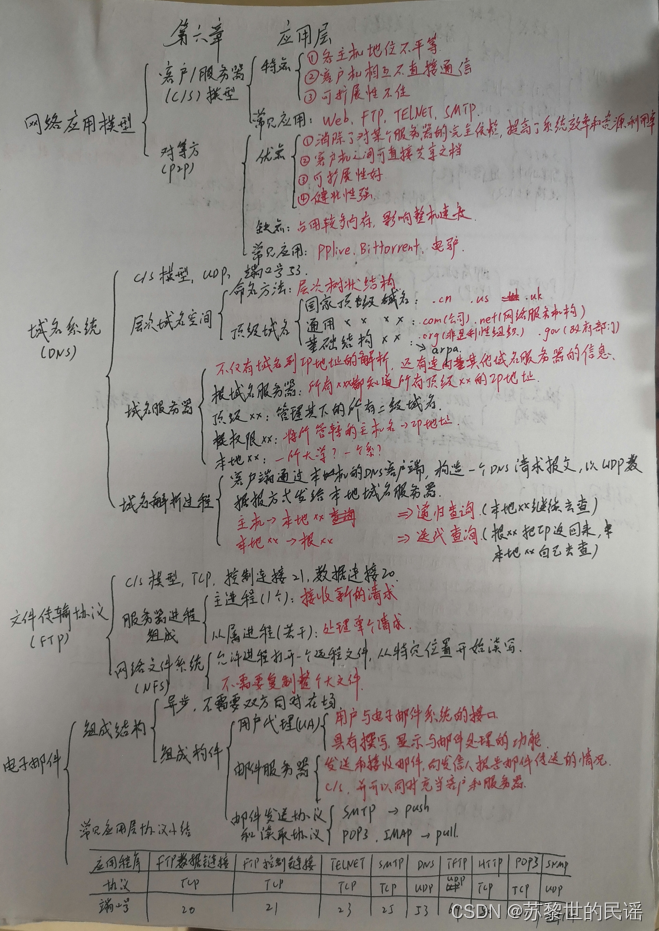 第六章 应用层
网络应用模型
客户/服务器
(C/S)模型
特点
①各主机地位不平等
②客户机相互不直接通信
③可扩展性不佳
常见应用：Web、FTP、TELNET、SMTP.
对等方
(P2P)
优点
①消除了对某个服务器的完全依赖，提高了系统效率和资源利用率
②客户机之间可直接共享文档
③可扩展性好
④健壮性强
缺点：占用较多内存，影响整机速度
常见应用：PPlive、Bittorrent、电驴
域名系统
(DNS)
C/S模型，UDP，端口号53.
层次域名空间
命名方法：层次树状结构
顶级域名
国家顶级域名：.cn .us .uk
通用xx xx：.com(公司) .net(网络服务机构)
.org(非营利性组织) .gov(政府部门)
基础结构xx：→arpa
域名服务器
不仅有域名到IP地址的解析，还有连向其他域名服务器的信息
根域名服务器：所有xx都知道所有顶级xx的IP地址
顶级xx：管理其下的所有二级域名
授权限xx：将所管辖的主机名→IP地址
本地xx：一所大学？一个系？
域名解析过程
客户端通过本地机的DNS客户端，构造一个DNS请求报文，以UDP数
据报方式发给本地域名服务器
主机→本地xx ⇒递归查询(本地xx继续去查)
本地xx→根xx ⇒迭代查询(根xx把IP返回来，
本地xx自己去查)
文件传输协议
(FTP)
C/S模型，TCP，控制连接21，数据连接20.
服务器进程
组成
主进程(1个)：接收新的请求
从属进程(若干)：处理单个请求
网络文件系统
(NFS)
允许进程打开一个远程文件，从特定位置开始读写.
不需要复制整个大文件
电子邮件
组成结构
异步，不需要双方同时在场
组成构件
用户代理(UA)
用户与电子邮件系统的接口
具有撰写、显示与邮件处理的功能
邮件服务器
发送和接收邮件，向发信人报告邮件传送的情况
C/S，并可以同时充当客户和服务器
邮件发送协议
和读取协议
SMTP → push
POP3、IMAP → pull
常见应用层协议小结
应用程序 FTP数据链接 FTP控制链接 TELNET SMTP DNS TFTP HTTP POP3 SNMP
协议 TCP TCP TCP TCP UDP UDP TCP TCP UDP
端口号 20 21 23 25 53
CSDN @苏黎世的民谣